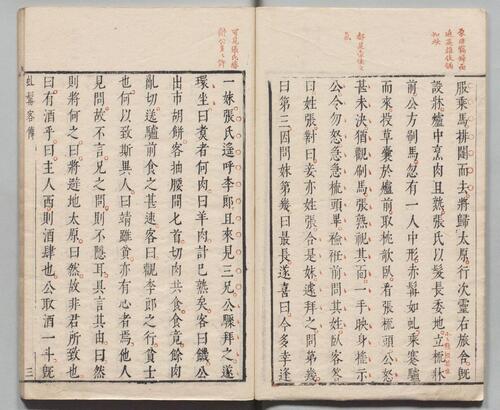 服乘馬排闥而去將歸太原行次靈右旅舍旣
設牀爐中烹肉且熟張氏以髮長委地立梳牀
前公方刷馬忽有一人中形赤髯如虬乘蹇驢
而來投草囊於爐前取枕欹臥看張梳頭公怒
甚未決猶觀刷馬張熟視其面一手映身搖示
公令勿怒急急梳頭畢襝衽前問其姓臥客答
曰姓張對曰妾亦姓張合是妹遽拜之問第幾
曰第三因問妹第幾曰最長遂喜曰今多幸逢
可見張氏勝
一妹張氏遙呼李郎且來見三兄公驟拜之遂
環坐曰煑者何肉曰羊肉計已熟矣客曰饑公
出市胡餅客抽腰間匕首切肉共食食竟餘肉
亂切送驢前食之甚速客曰觀李郎之行貧士
也何以致斯異人曰靖雖貧亦有心者焉他人
見問故不言兄之問則不隱耳具言其由曰然
則將何之曰將避地太原曰然故非君所致也
曰有酒乎曰主人西則酒肆也公取酒一斗旣
虬髯客傳 三